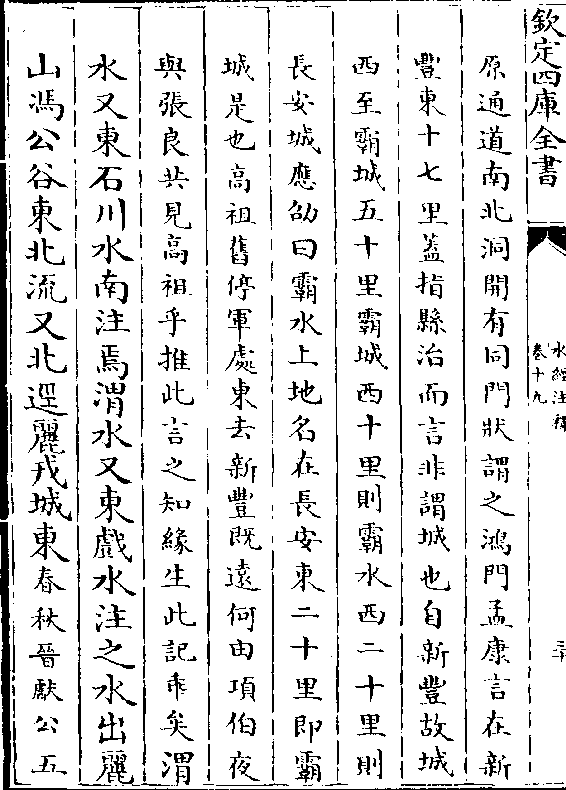 欽定四庫全書
水經注釋
卷十九
二十
原通道南北洞開有同門狀謂之鴻門孟康言在新
豐東十七里蓋指縣治而言非謂城也自新豐故城
西至霸城五十里霸城西十里則霸水西二十里則
長安城應劭曰霸水上地名在長安東二十里即霸
城是也高祖舊停軍處東去新豐既遠何由項伯夜
與張良共見高祖乎推此言之知緣生此記乖矣渭
水又東石川水南注焉渭水又東戲水注之水出麗
山馮公谷東北流又北逕麗戎城東春秋晉獻公五